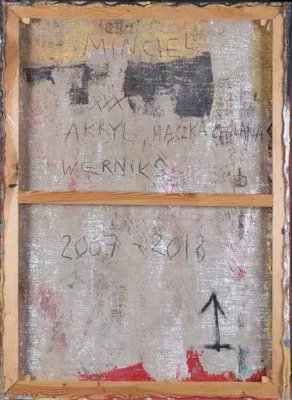 MINCIEL
XXX
AKRYL, MĄCZKA CEGLANA
WERNIKS
2007 - 2018